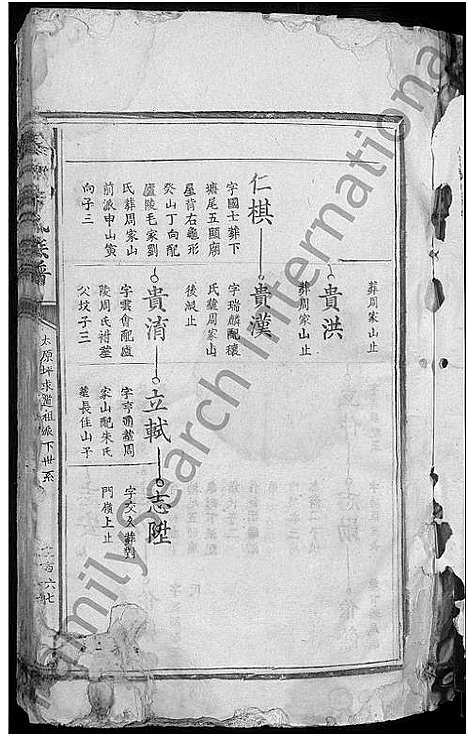 葬周家山止
貴洪
葬周家山止
仁棋
字國士葬下
塘尾五顯廟
屋背右龜形
癸山丁向配
廬陵毛家劉
氏葬周家山
前派申山寅
向子三
貴漢
字瑞麟配穰
氏葬周家山
後派止
貴淯
字雲會配廬
陵周氏祔塋
父坟子三
立軾
字亨通葬周
家山配朱氏
葬長佳山子
志陞
字交久葬對
門嶺上止
族譜
太原坪求監祖派下世系
FamilySearch International